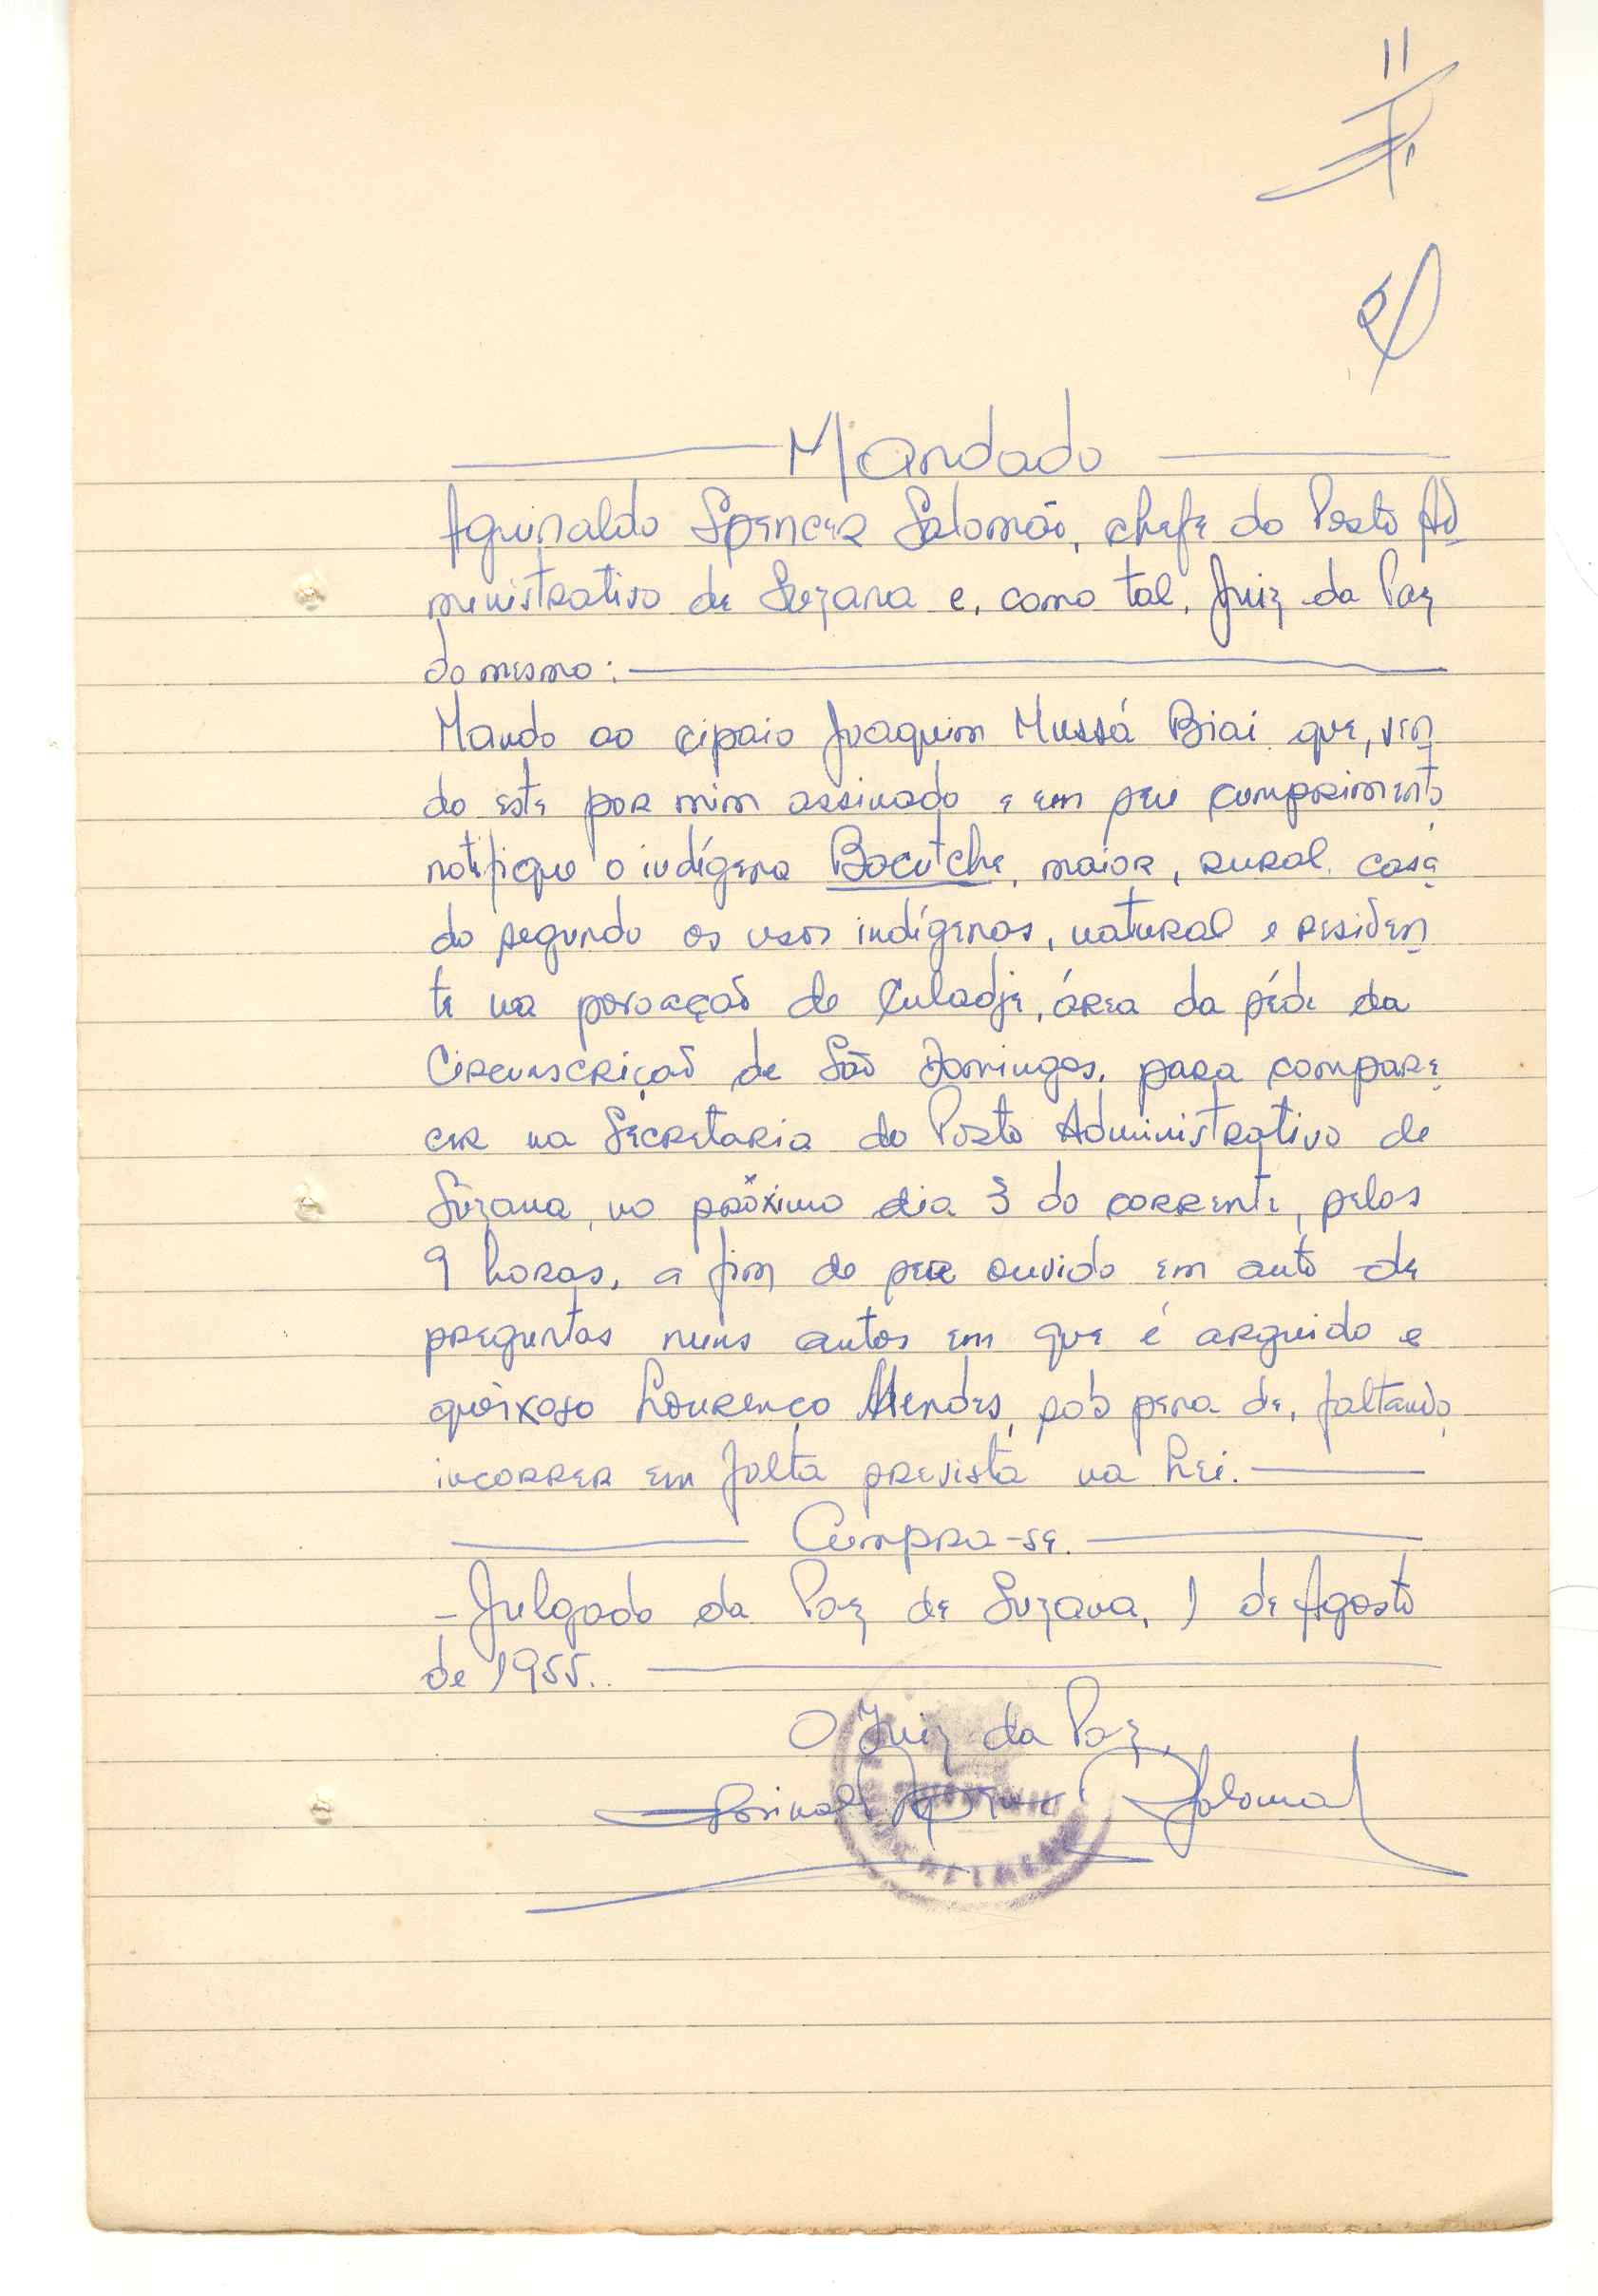 11
Mandado
Aguinaldo Spencer Salomão, chefe do Posto Ad
ministrativo de Suzana e, como tal, Juiz da Paz
do mesmo:
Mando ao cipaio Joaquim Mussá Biai que, ven
do este por mim assinado e em seu comprimento,
notifique o indígena Bocutche, maior, rural, casa
do segundo os usos indígenas, natural e residen
te na povoação de Culadje, área da séde da
Circunscrição de São Domingos, para compare
cer na Secretaria do Posto Administrativo de
Suzana, no próximo dia 3 do corrente, pelas
9 horas, a fim de ser ouvido em auto de
preguntas nuns autos em que é arguido e
queixoso Lourenço Mendes, sob pena de, faltando,
incorrer em falta prevista na Lei.
Cumpra-se.
- Julgado da Paz de Suzana, 1 de Agosto
de 1955.
O Juiz da Paz,